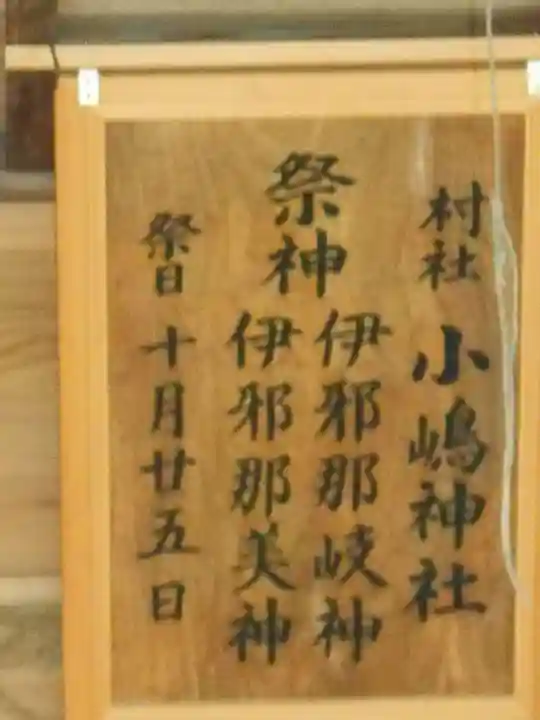 村社 小嶋神社
祭神
伊邪那岐神
伊邪那美神
祭日 十月廿五日